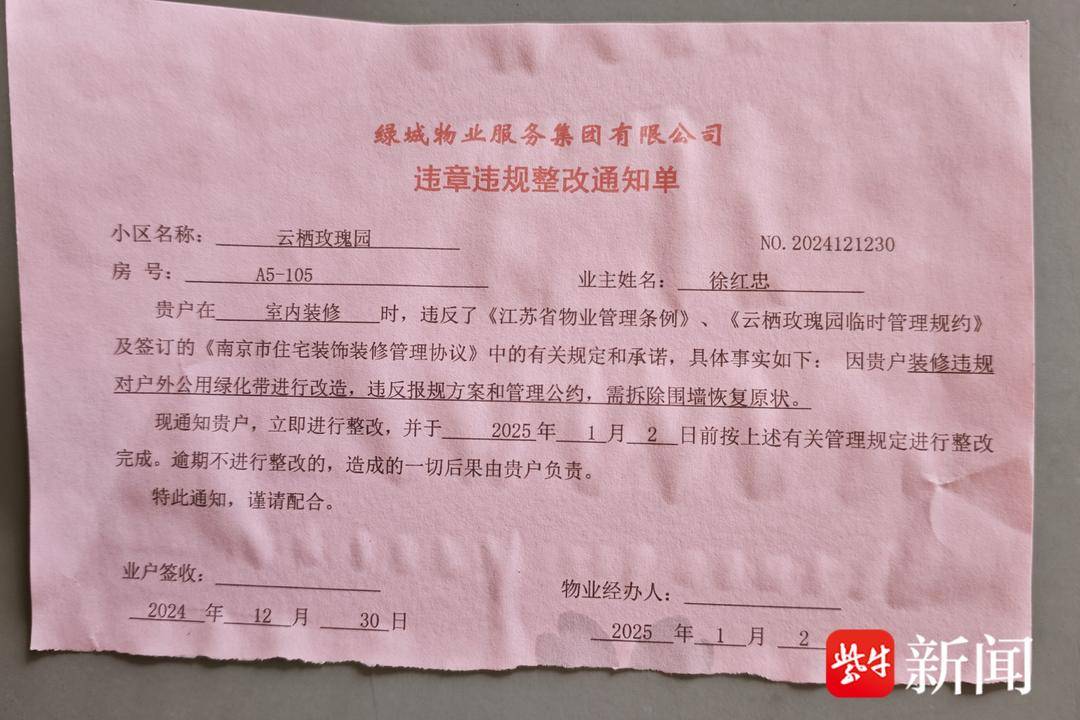 绿城物业服务集团有限公司
违章违规整改通知单
小区名称： 云栖玫瑰园 NO. 2024121230
房 号： A5-105 业主姓名： 徐红忠
贵户在 室内装修 时，违反了《江苏省物业管理条例》、《云栖玫瑰园临时管理规约》
及签订的《南京市住宅装饰装修管理协议》中的有关规定和承诺，具体事实如下： 因贵户装修违规
对户外公用绿化带进行改造，违反报规方案和管理公约，需拆除围墙恢复原状。
现通知贵户，立即进行整改，并于 2025 年 1 月 2 日前按上述有关管理规定进行整改
完成。逾期不进行整改的，造成的一切后果由贵户负责。
特此通知，谨请配合。
业户签收： 物业经办人：
2024 年 12 月 30 日 2025 年 1 月 2
紫牛 新闻